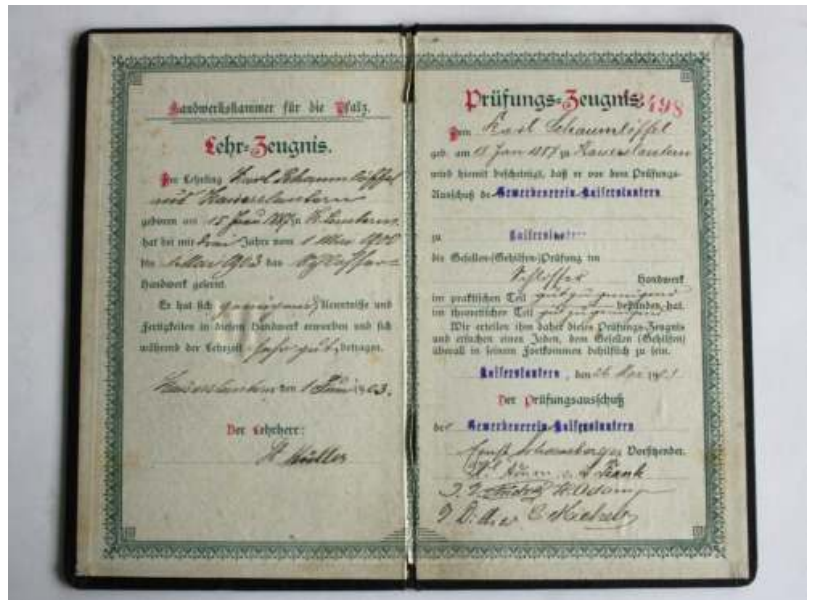 Handwerkskammer für die Pfalz.
Lehr-Zeugnis.
Der Lehrling Karl Schaumlöffel
aus Kaiserslautern
geboren am 15 Janu 1887 zu K.lautern
hat bei mir drei Jahre vom 1 März 1900
bis 1903 das Schlosser-
Handwerk gelernt.
Er hat sich genügende Kenntnisse und
Fertigkeiten in diesem Handwerk erworben und sich
während der Lehrzeit sehr gut betragen.
Kaiserslautern den 1 Juni 1903.
Der Lehrherr:
Müller
Prüfungs-Zeugnis. 3498
Dem Karl Schaumlöffel
geb. am 15 Jan 1887 zu Kaiserslautern
wird hiermit bescheinigt, daß er vor dem Prüfungs-
Ausschuß de Gewerbeverein Kaiserslautern
zu Kaiserslautern
die Gesellen-(Gehilfen-)Prüfung im
Schlosser Handwerk
im praktischen Teil gut zu genügend
im theoretischen Teil gut zu genügend bestanden hat.
Wir erteilen ihm daher dieses Prüfungs-Zeugnis
und ersuchen einen Jeden, dem Gesellen (Gehilfen)
überall in seinem Fortkommen behilflich zu sein.
Kaiserslautern, den 26
Der Prüfungsausschuß
des Gewerbeverein Kaiserslautern
Ernst Vorsitzender.
Frank